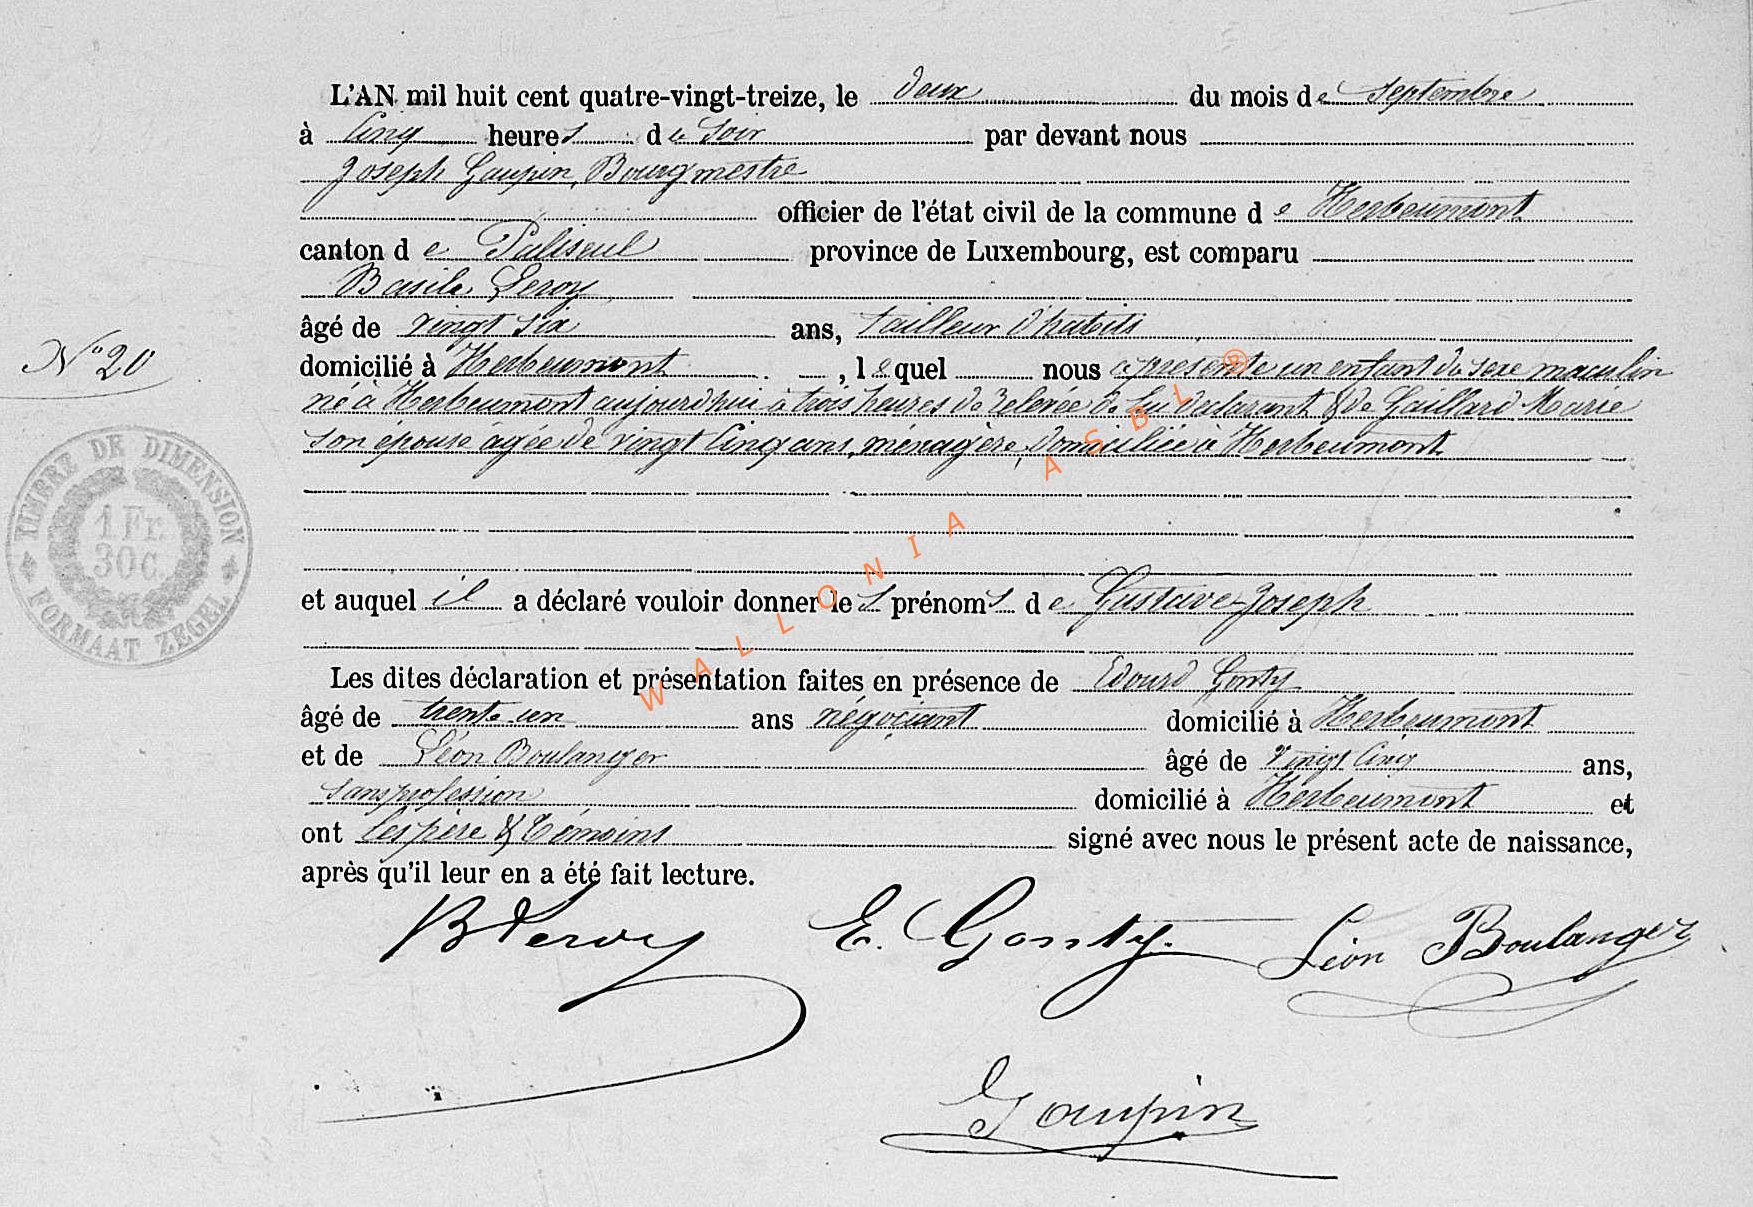 L'AN mil huit cent quatre-vingt-treize, le deux du mois de septembre
à cinq heures de soir par devant nous
Joseph Gaupin, Bourgmestre
officier de l'état civil de la commune de Herbeumont
canton de Paliseul province de Luxembourg, est comparu
Basile Leroy
âgé de vingt six ans, tailleur d'habits
N° 20
domicilié à Herbeumont, lequel nous a presente un enfant du sexe maculin
né à Herbeumont aujourd'hui à trois heures de relevée de lui declarant & de Gaillard Marie
son épouse agée de vingt cinq ans, ménagère, domiciliée à Herbeumont
TIMBRE DE DIMENSION
1 Fr.
30 c.
FORMAAT ZEGEL
et auquel il a déclaré vouloir donner les prénoms de Gustave-Joseph
Les dites déclaration et présentation faites en présence de Edourd Gonty
âgé de trente un ans négociant domicilié à Herbeumont
et de Léon Boulanger âgé de vingt cinq ans,
sans profession domicilié à Herbeumont et
ont les père & témoins signé avec nous le présent acte de naissance,
après qu'il leur en a été fait lecture.
B Leroy E. Gonty. Léon Boulanger
Gaupin
WALLONIA ASBL ®